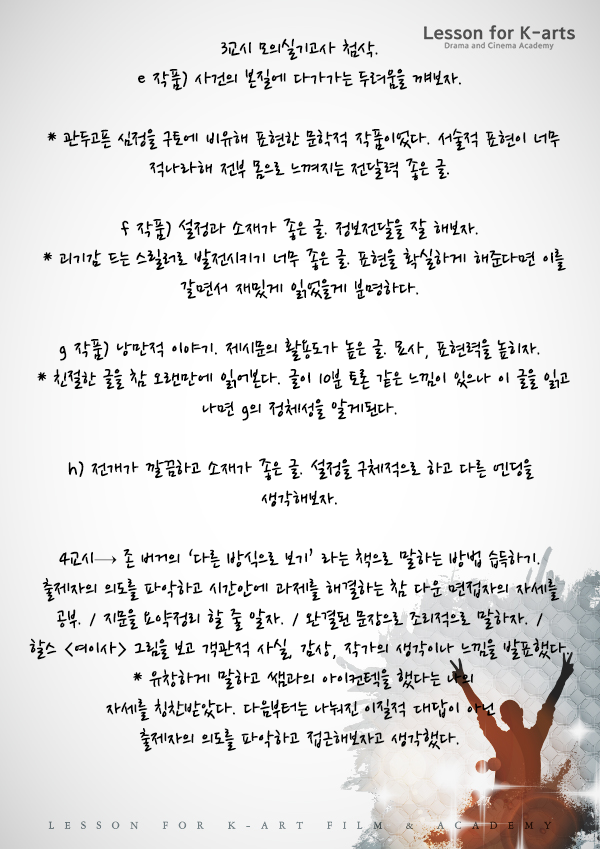 Lesson for K-arts
Drama and Cinema Academy
3교시 모의실기고사 첨삭.
e 작품) 사건의 본질에 다가가는 두려움을 깨보자.
* 관두고픈 심정을 구토에 비유해 표현한 문학적 작품이었다. 서술적 표현이 너무
적나라해 전부 몸으로 느껴지는 전달력 좋은 글.
f 작품) 설정과 소재가 좋은 글. 정보전달을 잘 해보자.
* 괴기감 드는 스릴러로 발전시키기 너무 좋은 글. 표현을 확실하게 해준다면 이를
갈면서 재밌게 읽었을게 분명하다.
g 작품) 낭만적 이야기. 제시문의 활용도가 높은 글. 묘사, 표현력을 높히자.
* 친절한 글을 참 오랜만에 읽어본다. 글이 10분 토론 같은 느낌이 있으나 이 글을 읽고
나면 g의 정체성을 알게된다.
h) 전개가 깔끔하고 소재가 좋은 글. 설정을 구체적으로 하고 다른 엔딩을
생각해보자.
4교시→ 존 버거의 '다른 방식으로 보기' 라는 책으로 말하는 방법 습득하기.
출제자의 의도를 파악하고 시간안에 과제를 해결하는 참 다운 면접자의 자세를
공부. / 지문을 요약정리 할 줄 알자. / 완결된 문장으로 조리적으로 말하자. /
할스 <여이사> 그림을 보고 객관적 사실, 감상, 작가의 생각이나 느낌을 발표했다.
* 유창하게 말하고 쌤과의 아이컨텍을 했다는 나의
자세를 칭찬받았다. 다음부터는 나눠진 이질적 대답이 아닌
출제자의 의도를 파악하고 접근해보자고 생각했다.
LESSON FOR K-ART FILM & ACADEMY